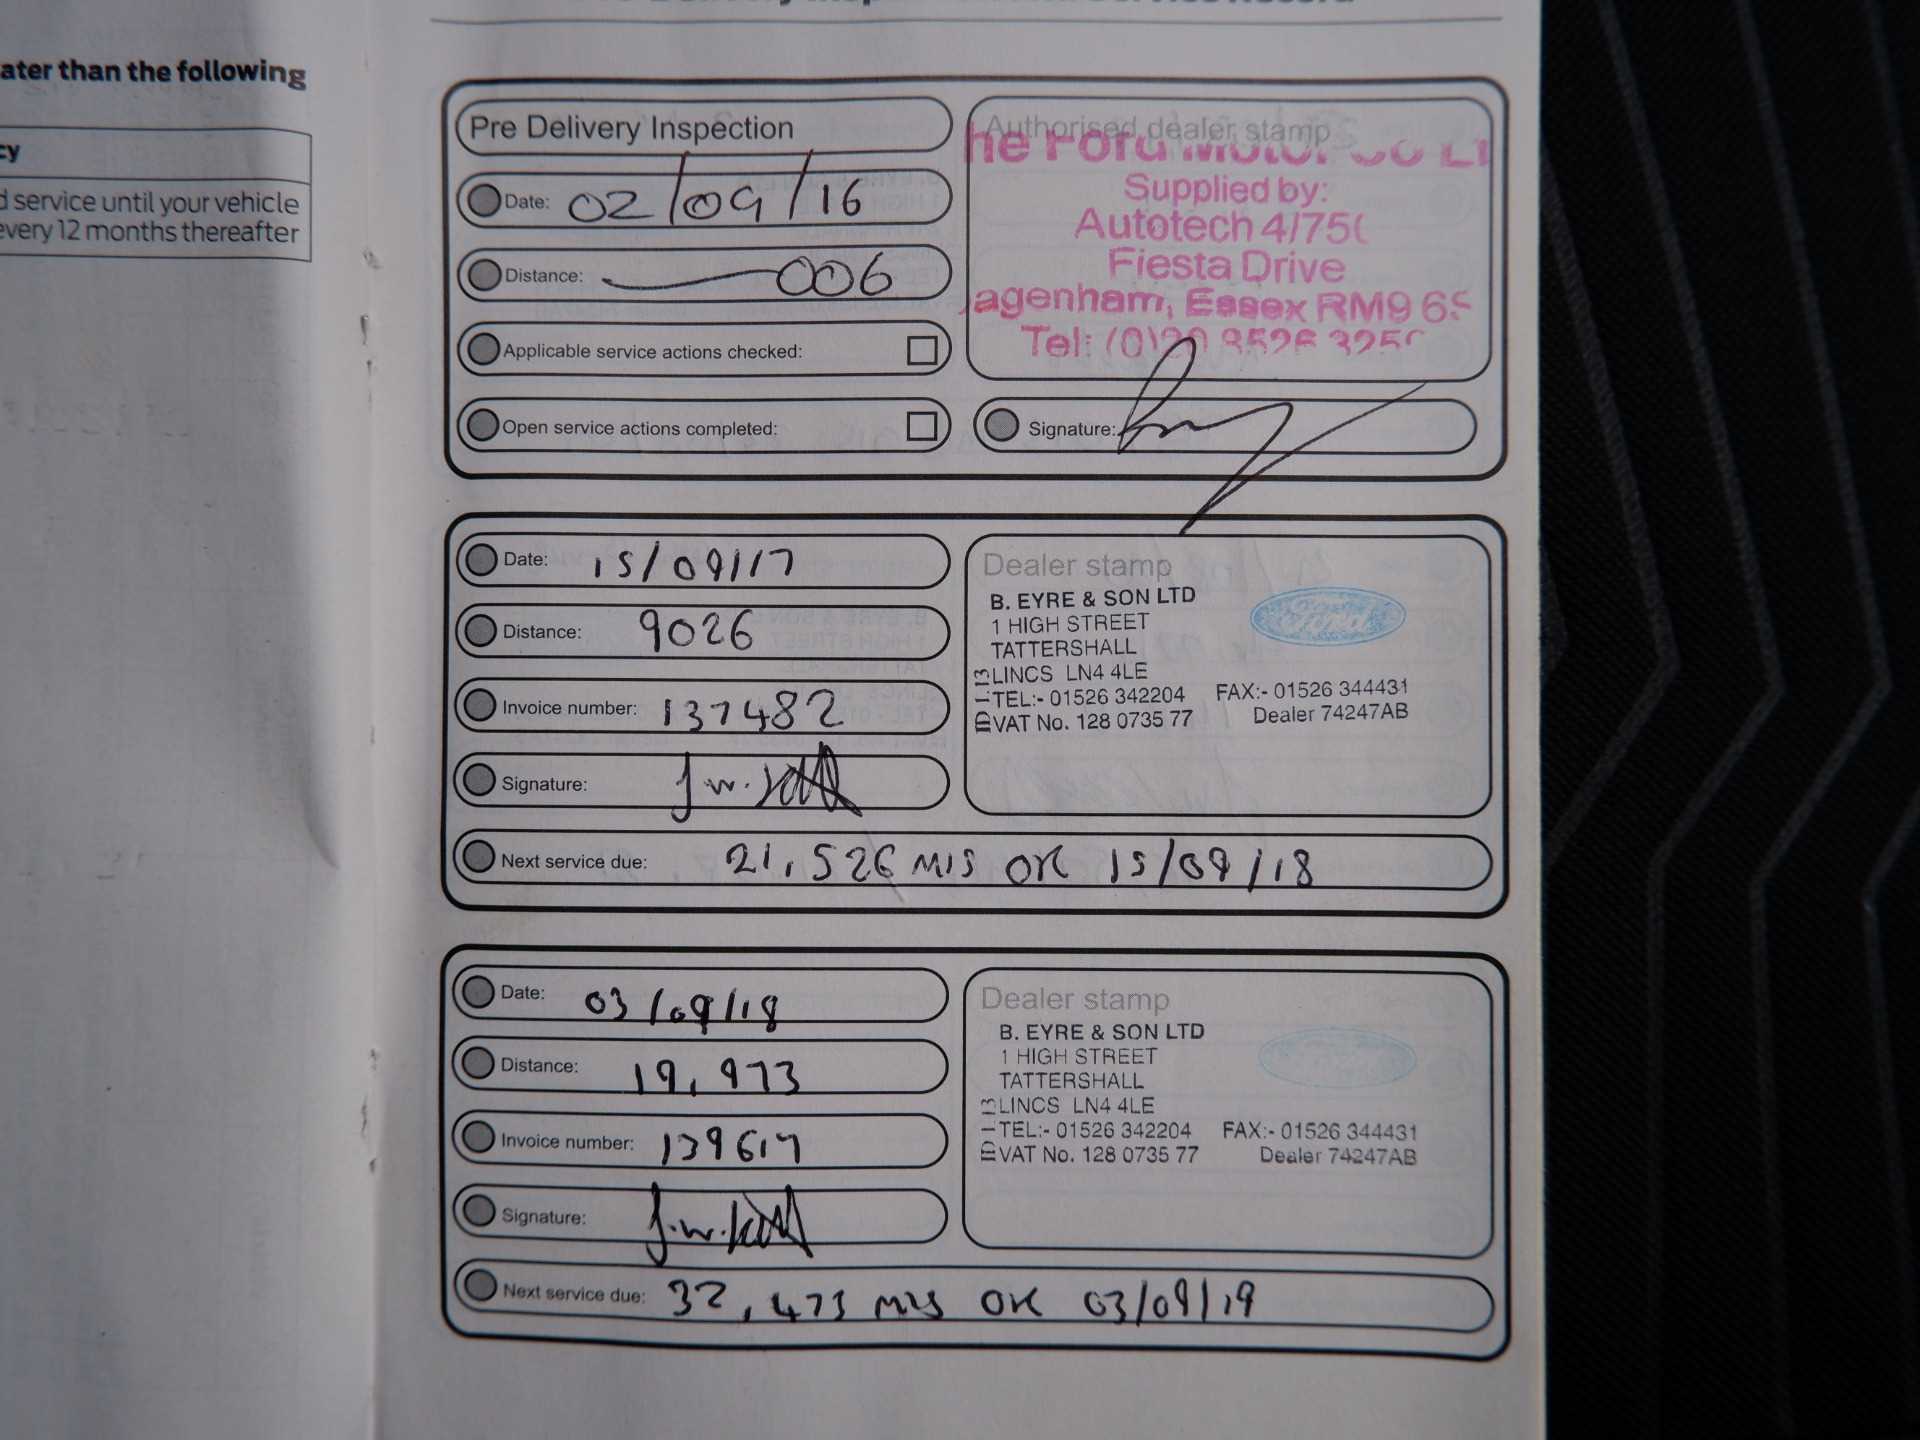 ater than the following
cy
d service until your vehicle
every 12 months thereafter
Pre Delivery Inspection
Date: 02/09/16
Distance: 006
Applicable service actions checked:
Open service actions completed:
Authorised dealer stamp
he Ford Motor Co Lt
Supplied by:
Autotech 4/750
Fiesta Drive
agenham, Essex RM9 6S
Tel: (0)20 8526 325
Signature:
Date: 15/09/17
Distance: 9026
Invoice number: 137482
Signature: J.W.
Next service due: 21,526 MLS OR 15/09/18
Dealer stamp
B. EYRE & SON LTD
Ford
1 HIGH STREET
TATTERSHALL
LINCS LN4 4LE
TEL:- 01526 342204 FAX:- 01526 344431
VAT No. 128 0735 77 Dealer 74247AB
Date: 03/09/18
Distance: 19,973
Invoice number: 139617
Signature: J.W.
Next service due: 32,473 MLS OR 03/09/19
Dealer stamp
B. EYRE & SON LTD
Ford
1 HIGH STREET
TATTERSHALL
LINCS LN4 4LE
TEL:- 01526 342204 FAX:- 01526 344431
VAT No. 128 0735 77 Dealer 74247AB